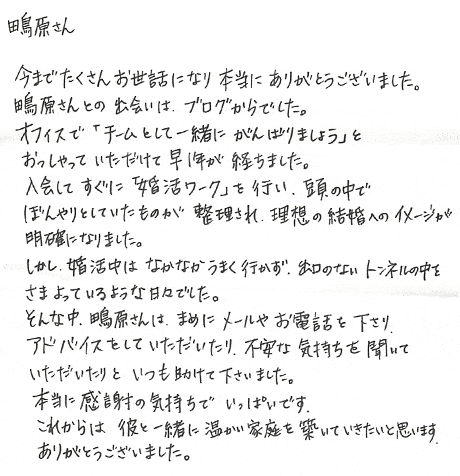 鴫原さん
今までたくさんお世話になり本当にありがとうございました。
鴫原さんとの出会いは、ブログからでした。
オフィスで「チームとして一緒にがんばりましょう」と
おっしゃっていただけて早1年が経ちました。
入会してすぐに「婚活ワーク」を行い、頭の中で
ぼんやりとしていたものが整理され、理想の結婚へのイメージが
明確になりました。
しかし、婚活中はなかなかうまく行かず、出口のないトンネルの中を
さまよっているような日々でした。
そんな中、鴫原さんは、まめにメールやお電話を下さり、
アドバイスをしていただいたり、不安な気持ちを聞いて
いただいたりといつも助けて下さいました。
本当に感謝の気持ちでいっぱいです。
これからは彼と一緒に温かい家庭を築いていきたいと思います。
ありがとうございました。